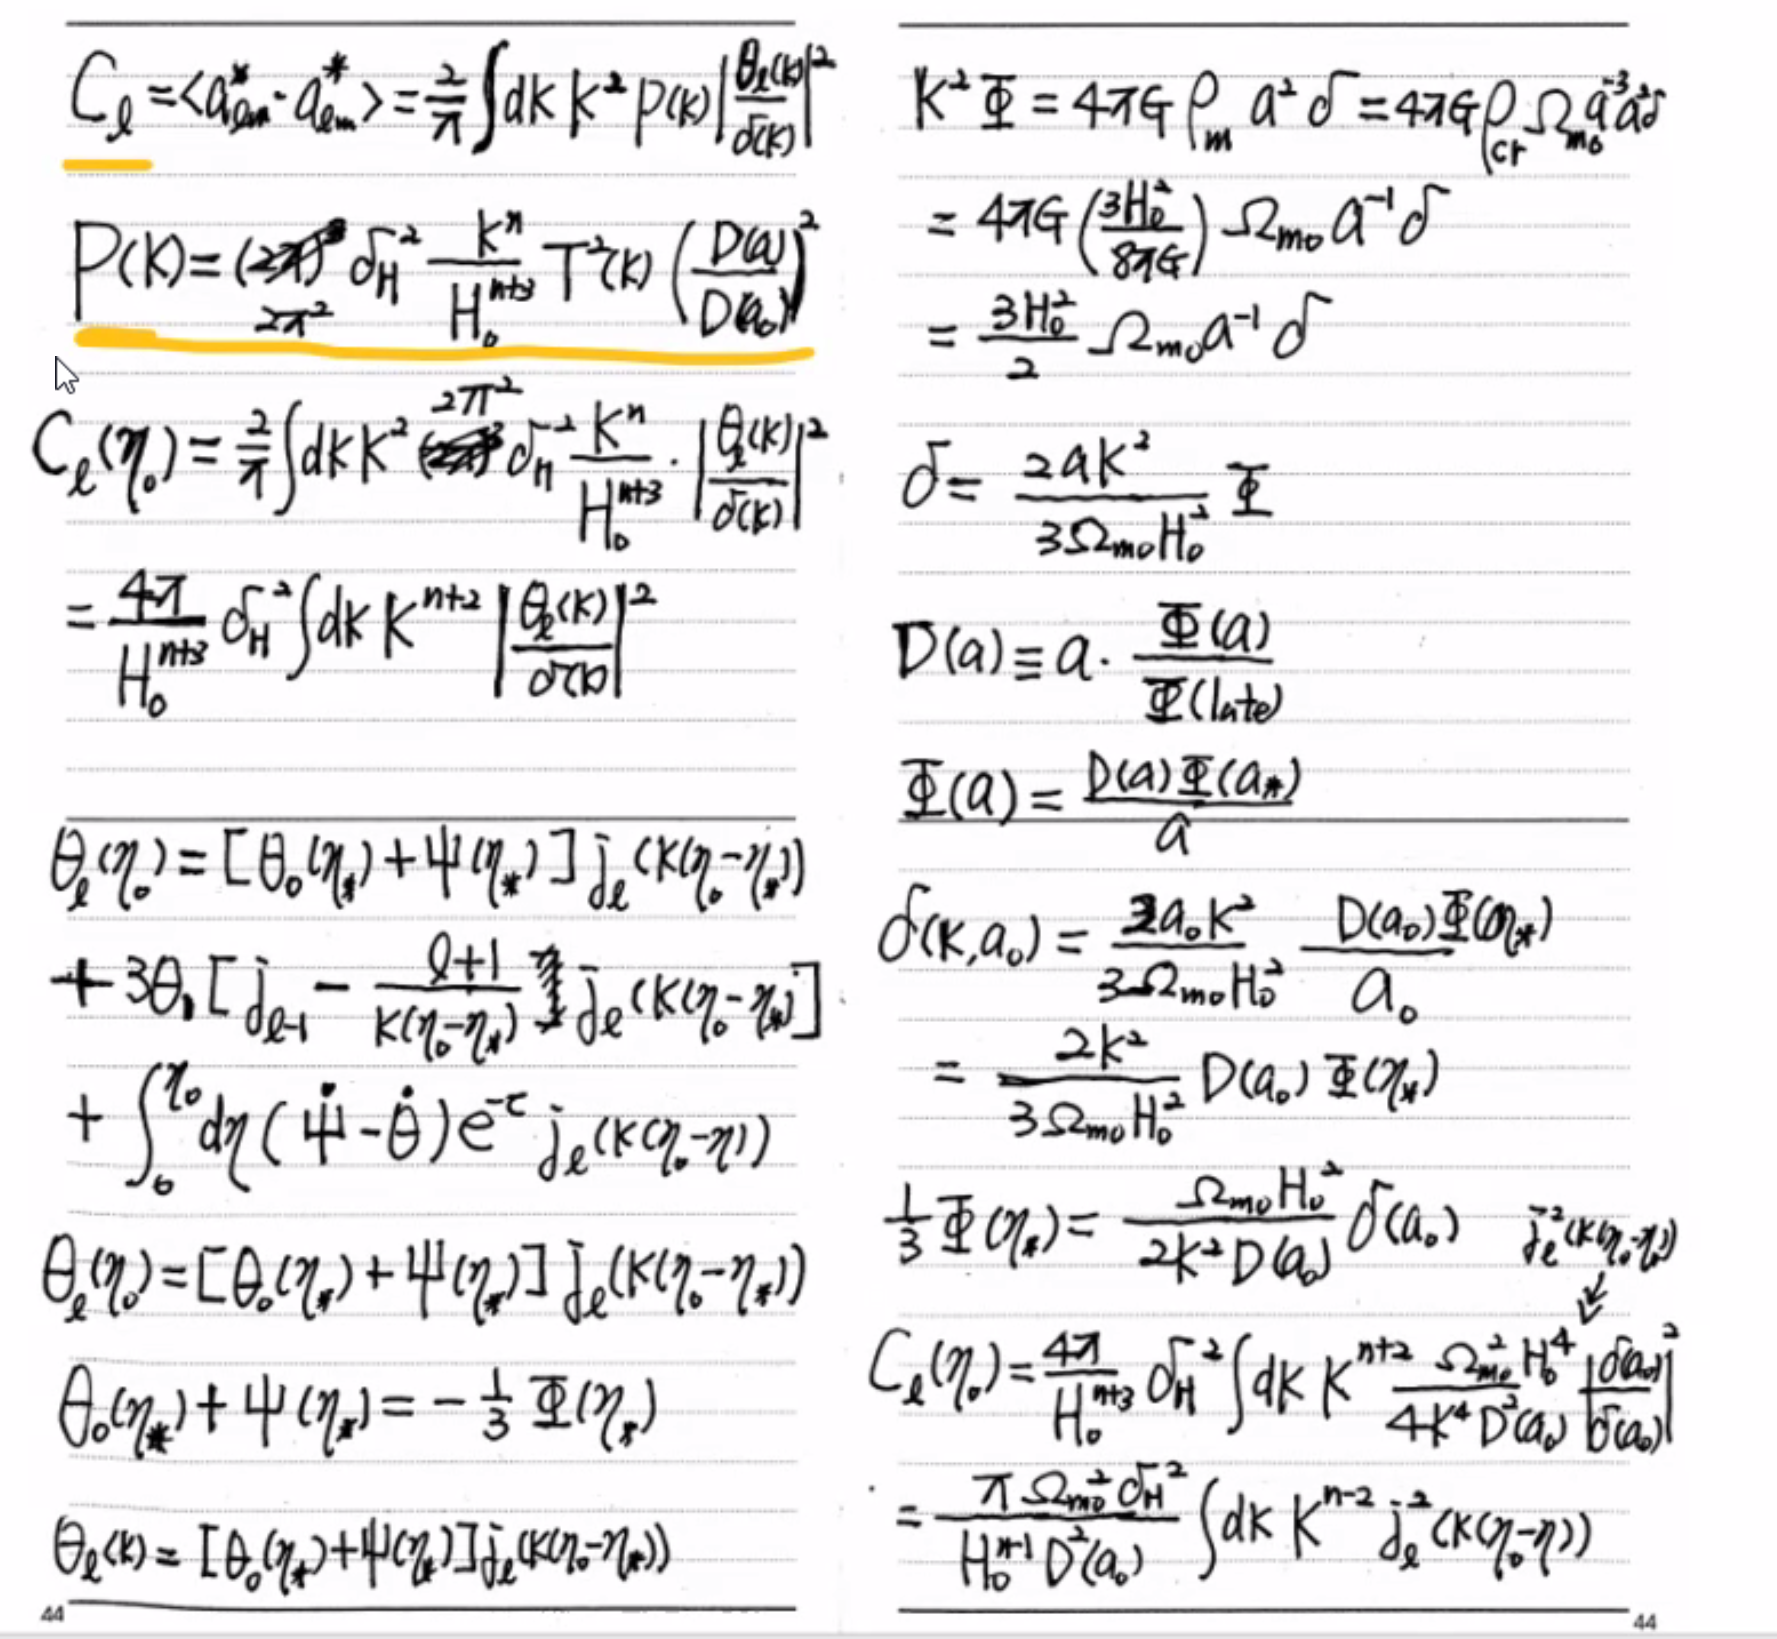 Cℓ = <a*ℓm · a*ℓm> = 2/π ∫dk k² P(k) |θℓ(k)/δ(k)|²
P(k) = 2π² δH² kⁿ/H₀ⁿ⁺³ T²(k) (D(a)/D(a₀))²
Cℓ(η₀) = 2/π ∫dk k² 2π² δH² kⁿ/H₀ⁿ⁺³ · |θℓ(k)/δ(k)|²
= 4π/H₀ⁿ⁺³ δH² ∫dk kⁿ⁺² |θℓ(k)/δ(k)|²
θℓ(η₀) = [θ₀(η*) + Ψ(η*)] jℓ(k(η₀-η*))
+ 3θ₁ [jℓ₋₁ - (ℓ+1)/(k(η₀-η*)) jℓ(k(η₀-η*)]
+ ∫₀^η₀ dη (Ψ̇ - θ̇) e^-τ jℓ(k(η₀-η))
θℓ(η₀) = [θ₀(η*) + Ψ(η*)] jℓ(k(η₀-η*))
θ₀(η*) + Ψ(η*) = - 1/3 Φ(η*)
θℓ(k) = [θ₀(η*) + Ψ(η*)] jℓ(k(η₀-η*))
44
k²Φ = 4πG ρm a² δ = 4πG ρcr Ωm₀ a⁻³ a² δ
= 4πG (3H₀²/8πG) Ωm₀ a⁻¹ δ
= 3H₀²/2 Ωm₀ a⁻¹ δ
δ = 2ak²/(3Ωm₀H₀²) Φ
D(a) ≡ a · Φ(a)/Φ(late)
Φ(a) = D(a)Φ(a*)/a
δ(k,a₀) = 2a₀k²/(3Ωm₀H₀²) D(a₀)Φ(η*)/a₀
= 2k²/(3Ωm₀H₀²) D(a₀) Φ(η*)
1/3 Φ(η*) = Ωm₀H₀²/(2k²D(a₀)) δ(a₀)
jℓ²(k(η₀-η₀))
Cℓ(η₀) = 4π/H₀ⁿ⁺³ δH² ∫dk kⁿ⁺² Ω²m₀H₀⁴/(4k⁴D²(a₀)) |δ(a₀)/δ(a₀)|²
= πΩ²m₀δH²/(H₀ⁿ⁻¹D²(a₀)) ∫dk kⁿ⁻² jℓ²(k(η₀-η))
44